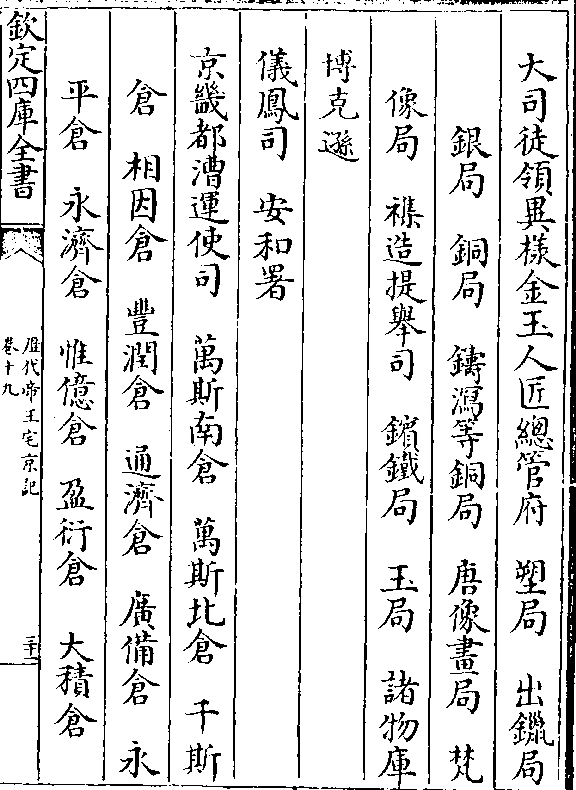 大司徒領異様金玉人匠總管府　塑局　出鑞局
銀局　銅局　鑄瀉等銅局　唐像畫局　梵
像局　襍造提舉司　鑌鐵局　玉局　諸物庫
博克遜
儀鳳司　安和署
京畿都漕運使司　萬斯南倉　萬斯北倉　千斯
倉　相因倉　豐潤倉　通濟倉　廣備倉　永
平倉　永濟倉　惟億倉　盈衍倉　大積倉
欽定四庫全書
歴代帝王宅京記
卷十九